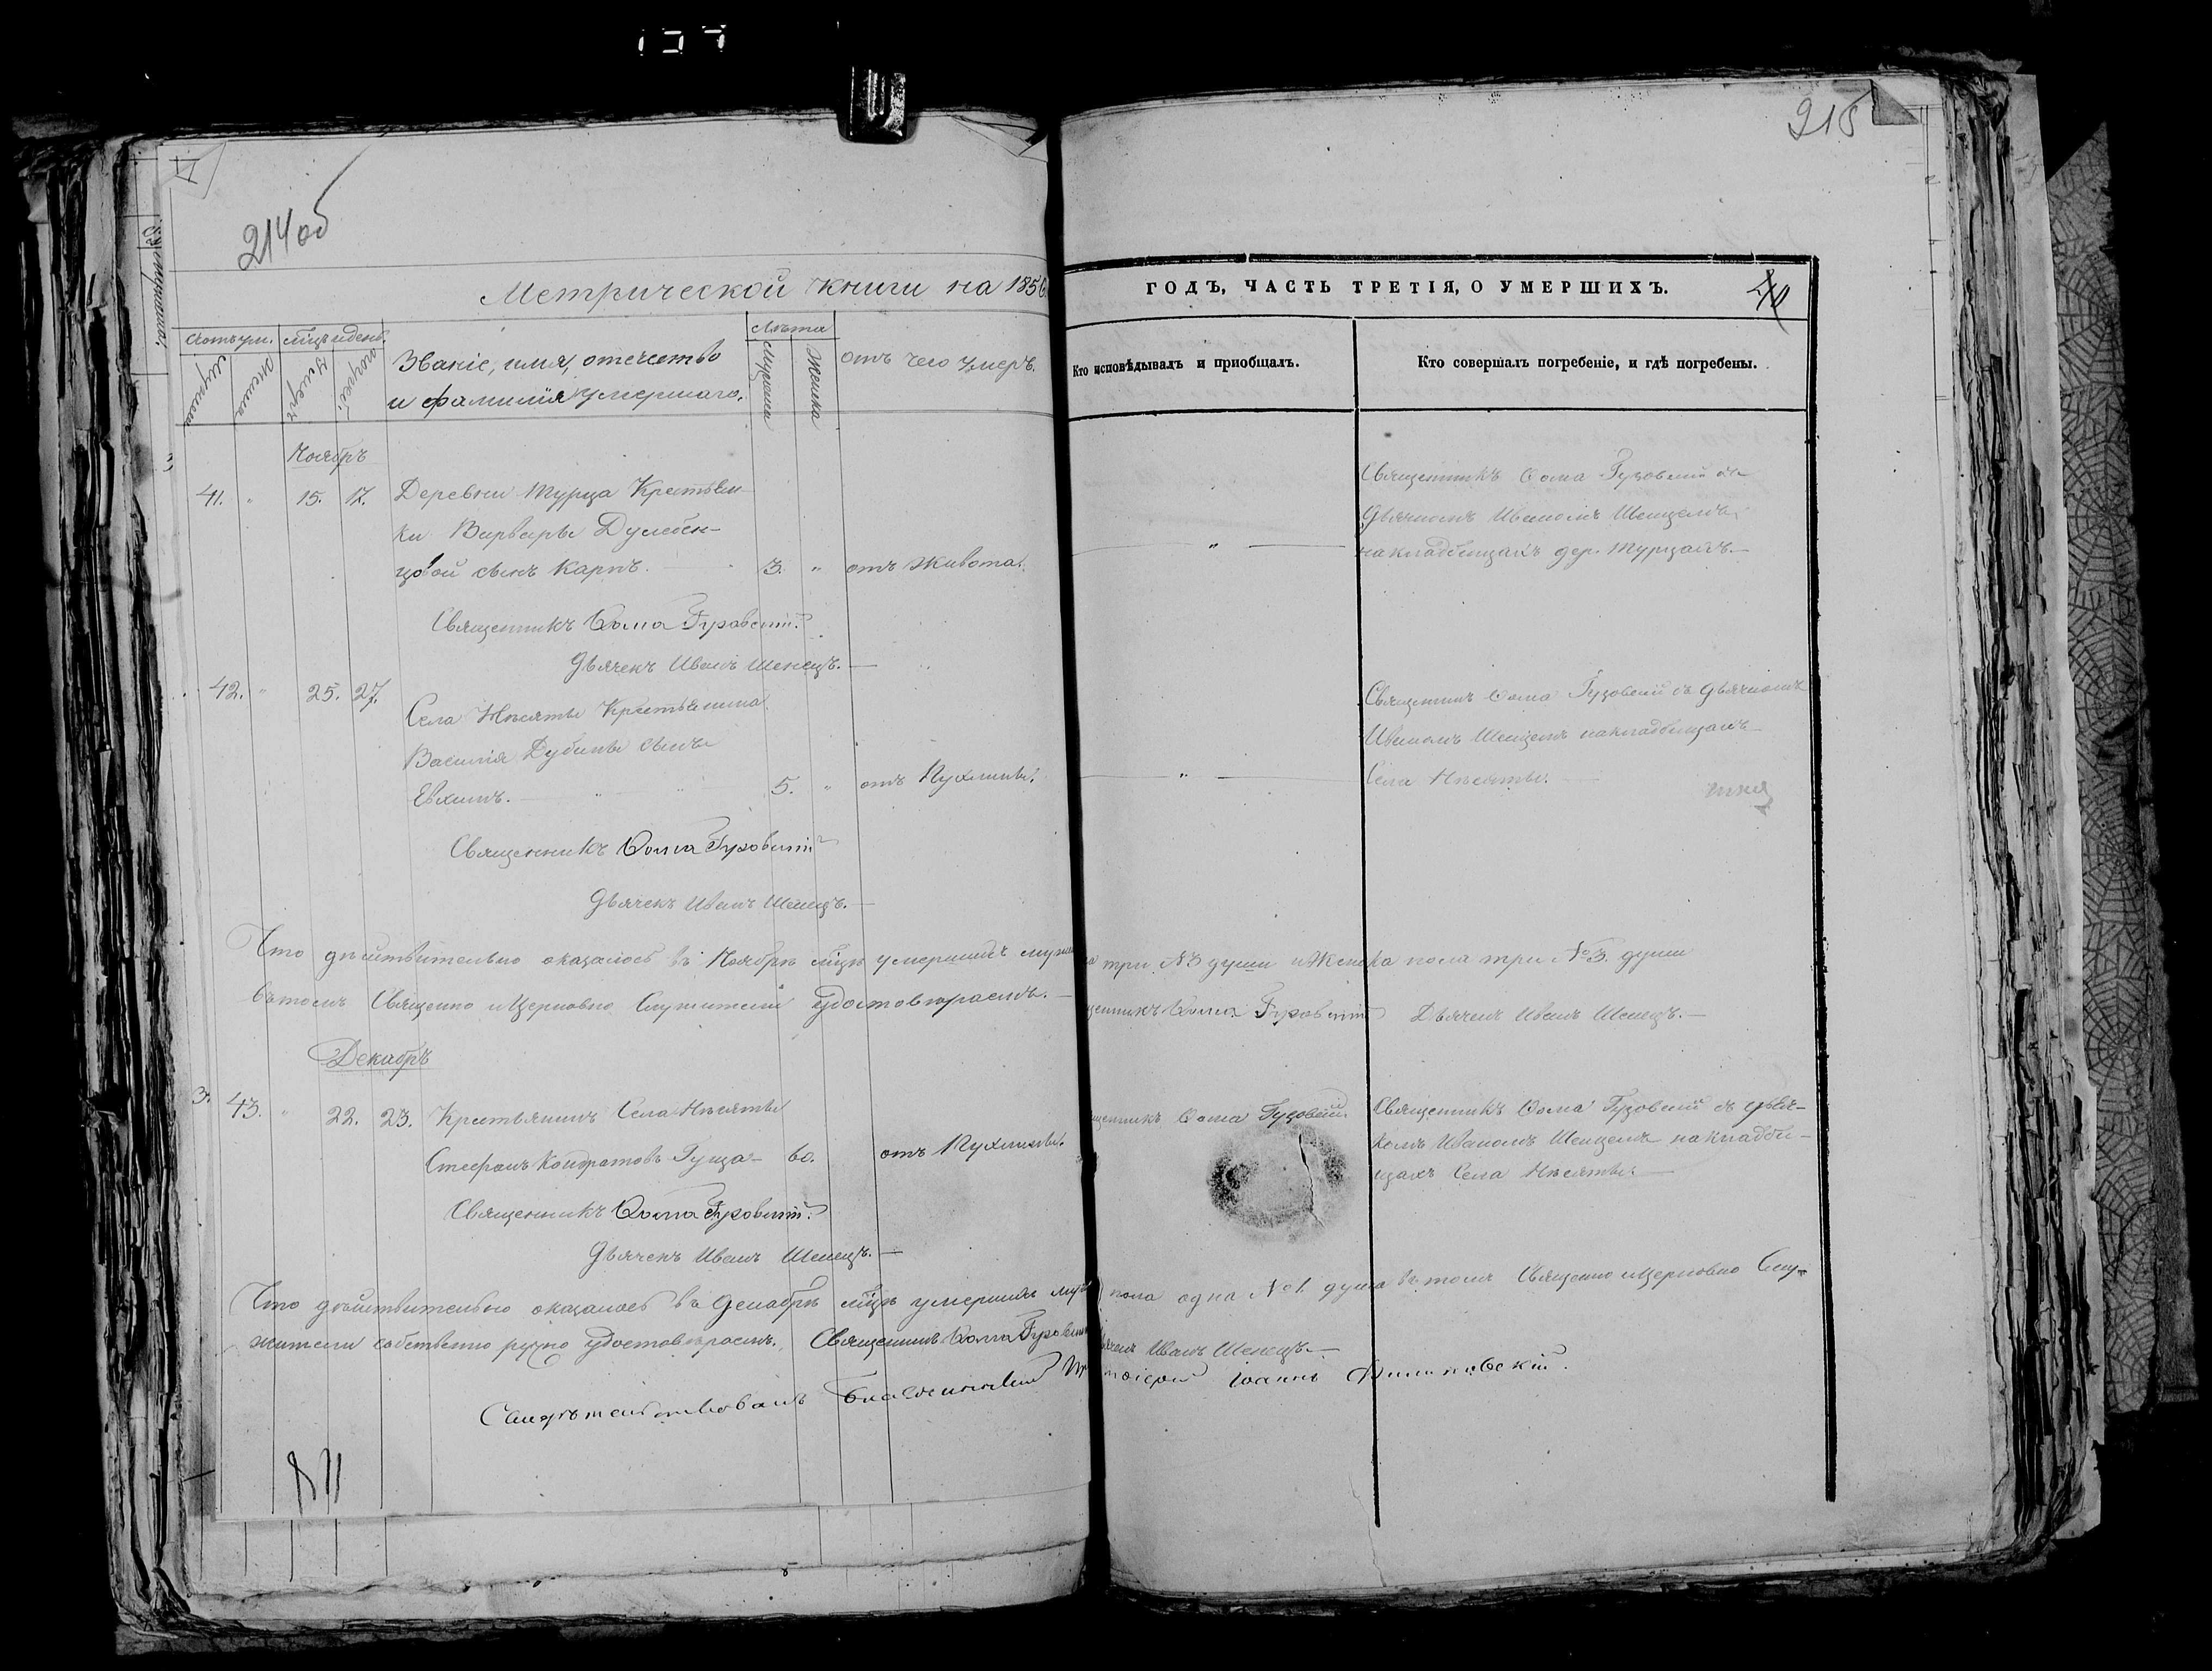 214 об
215
Метрической книги на 1856
ГОДЪ, ЧАСТЬ ТРЕТІЯ, О УМЕРШИХЪ.
40
Мужеска
Женска
Умеръ
погреб.
Званіе, имя, отчество
и фамилія умершаго.
Лѣта
Мужеска
Женска
отъ чего умеръ.
Кто исповѣдывалъ и приобщалъ.
Кто совершалъ погребеніе, и гдѣ погребены.
Ноябрь
41. " 15. 17. Деревни Турца Крестьян-
ки Варвары
цовой сынъ Карпъ. 3. " отъ живота.
Священникъ Ѳома Гузовскій съ
Дьячкомъ Иваномъ Шенцемъ
на кладбищахъ дер. Турцахъ.
"
Священникъ Ѳома Гузовскій.
Дьячекъ Иванъ Шенецъ.
42. " 25. 27. Села Нѣсяты Крестьянина
Василія Дубины сынъ
Евхимъ. 5. " отъ Пухлины.
Священникъ Ѳома Гузовскій съ Дьячкомъ
Иваномъ Шенцемъ на кладбищахъ
" Села Нѣсяты.
Священникъ Ѳома Гузовскій
Дьячекъ Иванъ Шенецъ.
Что дѣйствительно оказалось въ Ноябрѣ мѣсяцѣ умершихъ три №3 души и Женска пола три №3. души
въ томъ Священно и Церковно Служители удостовѣряемъ. Ѳома Гузовскій Дьячекъ Иванъ Шенецъ.
Декабрь
43. " 22. 23. Крестьянинъ Села Нѣсяты
Стефанъ Кондратовъ Гуща 60. отъ Пухлины.
Ѳома Гузовскій.
Священникъ Ѳома Гузовскій съ дьяч-
комъ Иваномъ Шенцемъ на кладби-
щахъ Села Нѣсяты.
Священникъ Ѳома Гузовскій
Дьячекъ Иванъ Шенецъ.
Что дѣйствительно оказалось въ Декабрѣ мѣсяцѣ умершихъ пола одна №1. душа въ томъ Священно и Церковно Слу-
жители собственно ручно удостовѣряемъ. Священникъ Ѳома Гузовскій Иванъ Шенецъ.
Свидѣтельствовалъ Благочинный Іоаннъ